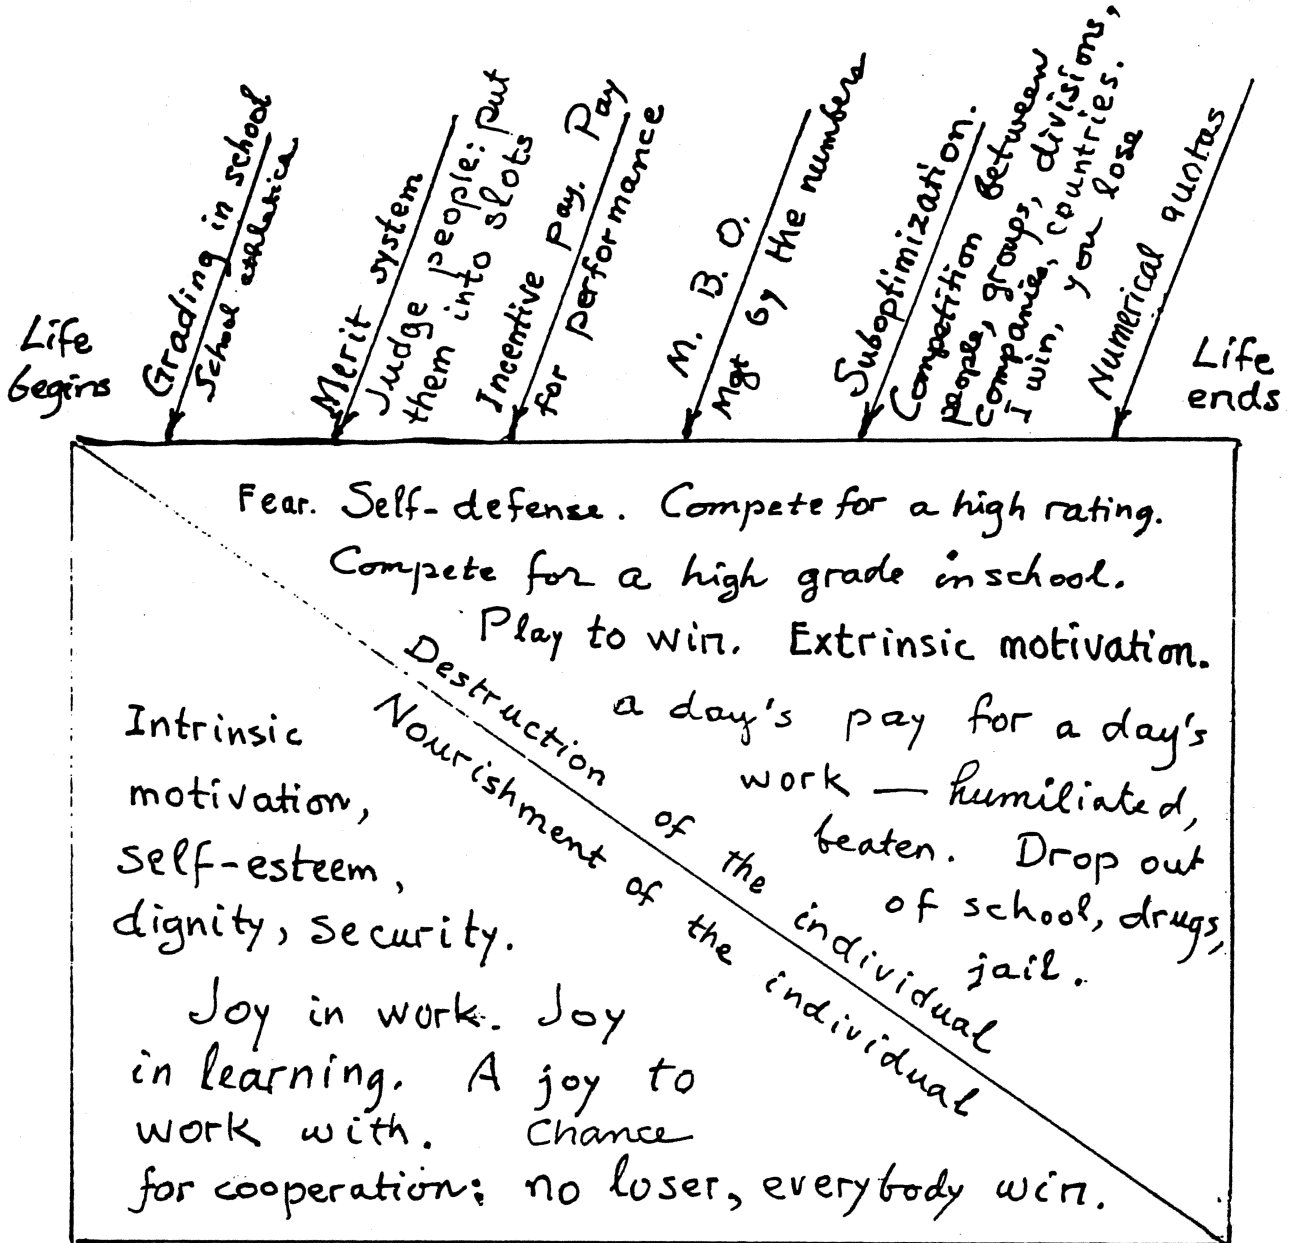 Life
begins
Grading in school
School athletics
Merit system
Judge people: put
them into slots
Incentive pay. Pay
for performance
M. B. O.
Mgt by the numbers
Suboptimization.
Competition between
people, groups, divisions,
companies, countries.
I win, you lose
Numerical quotas
Life
ends
Fear. Self-defense. Compete for a high rating.
Compete for a high grade in school.
Play to win. Extrinsic motivation.
a day's pay for a day's
work — humiliated,
beaten. Drop out
of school, drugs,
jail.
Destruction of the individual
Nourishment of the individual
Intrinsic
motivation,
self-esteem,
dignity, security.
Joy in work. Joy
in learning. A joy to
work with. Chance
for cooperation: no loser, everybody win.